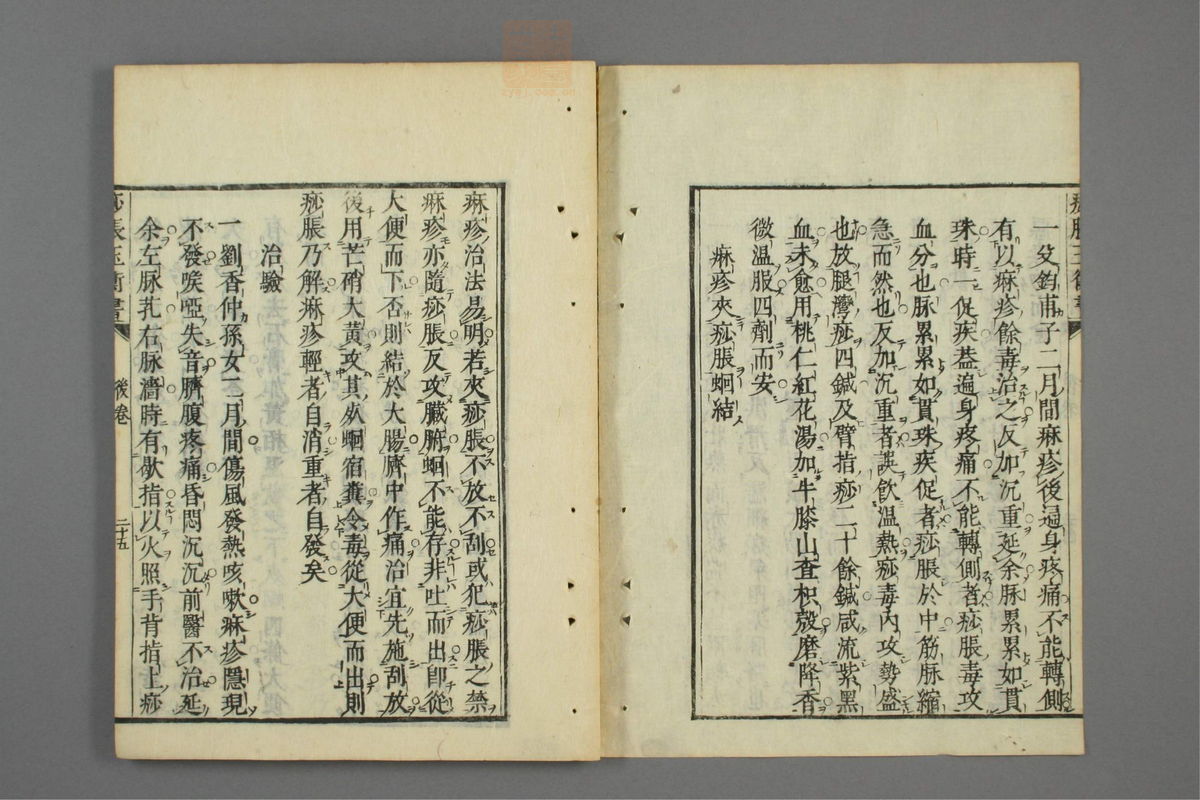 痧脹玉衡書
一爻鈞甫子二月間痳疹後遍身疼痛不能轉側
有以痳疹餘毒治之反加沉重延余脉累累如貫
珠時一促疾葢遍身疼痛不能轉側者痧脹毒攻
血分也脉累累如貫珠疾促者痧脹於中筋脉縮
急而然也反加沉重者誤飲温熱痧毒內攻勢盛
也放腿灣痧四鍼及臂指痧二十餘鍼咸流紫黑
血未愈用桃仁紅花湯加牛膝山査枳殼磨降香
微温服四劑而安
痳疹夾痧脹蛔結
痳疹治法易明若夾痧脹不放不刮或犯痧脹之禁
痳疹亦隨痧脹反攻臟腑蛔不能存非吐而出卽從
大便而下否則結於大腸臍中作痛治宜先施刮放
後用芒硝大黃攻其火蛔宿糞令毒從大便而出則
痧脹乃解痳疹輕者自消重者自發矣
治驗
一劉香仲孫女二月間傷風發熱咳嗽痳疹隱現
不發唉啞失音臍腹疼痛昏悶沉沉前醫不治延
余左脉芤右脉濇時有歇指以火照手背指上痧
痧脹玉衡書
後卷
二十五